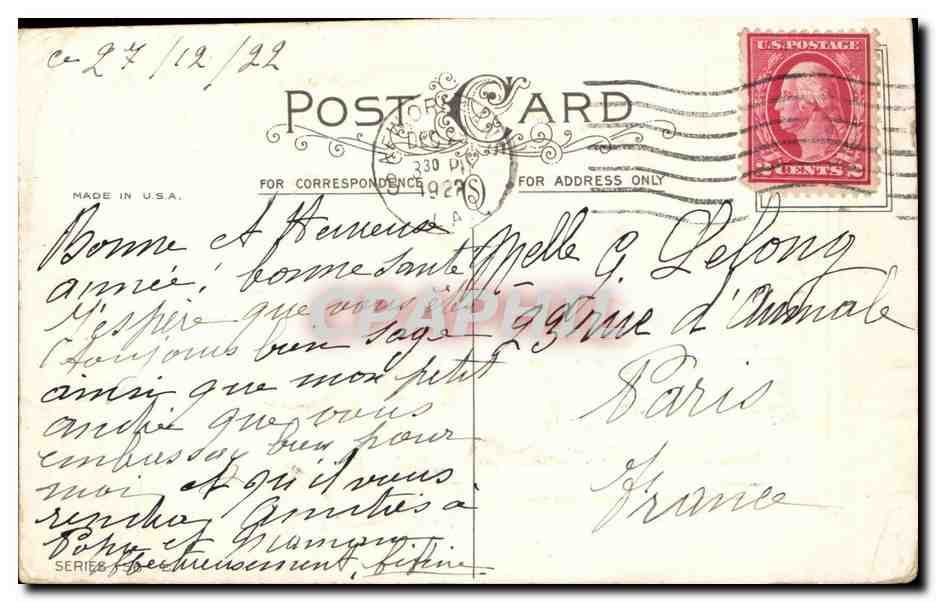 ce 27/12/22
U.S. POSTAGE
2 CENTS 2
POST CARD
NEW ORLEANS
DEC
330 PM
1922
LA
FOR CORRESPONDENCE
FOR ADDRESS ONLY
MADE IN U.S.A.
Bonne et Heureuse
année, bonne santé
J'espère que vous êtes
toujours bien sage
ainsi que mon petit
andré que vous
embrassez bien pour
moi et qu'il vous
amitiés à
Papa et Maman
Affectueusement,
SERIES
Melle G. Lelong
23 rue d'Aumale
Paris
France
CPAPHIL